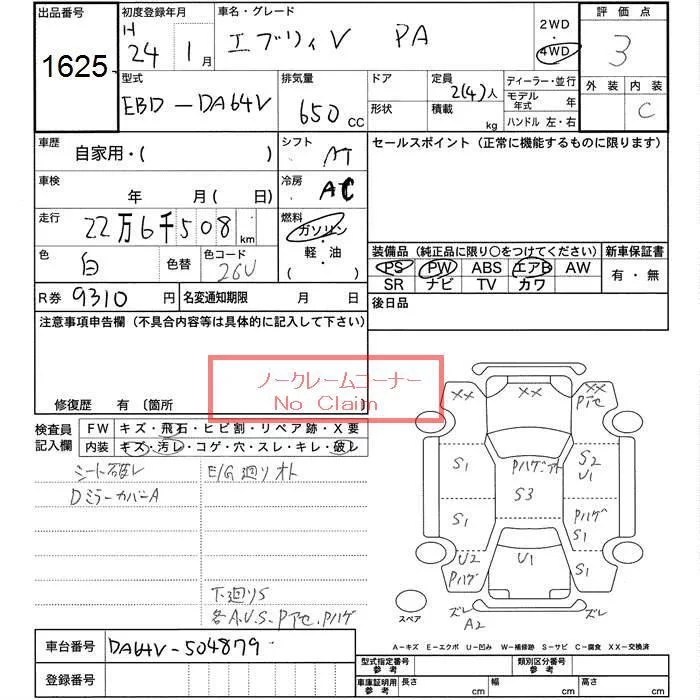 出品番号
1625
初度登録年月
H 24 1月
車名・グレード
エブリィV PA
2WD
4WD
評価点
3
型式
EBD-DA64V
排気量
650 CC
ドア
形状
定員
2(4)人
積載
kg
ディーラー・並行
モデル年式 年
ハンドル 左・右
外装 内装
C
車歴
自家用・( )
シフト
AT
セールスポイント（正常に機能するものに限ります）
車検
年 月 ( 日)
冷房
AC
走行
22万6千508km
燃料
ガソリン
軽・油
( )
色
白
色替
色コード
26U
装備品（純正品に限り○をつけてください）
新車保証書
PS PW ABS エアB AW
SR ナビ TV カワ
有・無
R券 9310円
名変通知期限 月 日
後日品
注意事項申告欄（不具合内容等は具体的に記入して下さい）
ノークレームコーナー
No Claim
修復歴 有〔箇所
検査員記入欄
FW キズ・飛石・ヒビ割・リペア跡・X要
内装 キズ・汚レ・コゲ・穴・スレ・キレ・破レ
シート破レ
E/G廻りオト
DミラーカバーA
下廻りS
各A.U.S.Pアセ.Pハゲ
XX
XX
Pアセ
S1
Pハゲ・アト
S2
U1
S3
S1
Pハゲ
S1
U2
Pハゲ
U1
S1
スペア
ズレ
A2
ズレ
A-キズ E-エクボ U-凹み W-補修跡 S-サビ C-腐食 XX-交換済
車台番号
DA64V-504879
登録番号
型式指定番号 参考
類別区分番号 参考
車庫証明用 参考
長さ cm
幅 cm
高さ cm